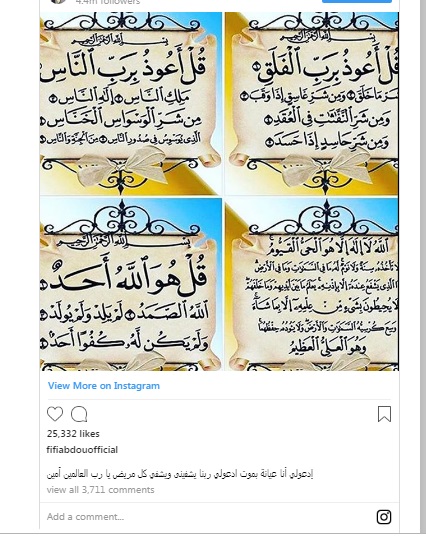 4.4m followers
بسم الله الرحمن الرحيم
قُلْ أَعُوذُ بِرَبِّ النَّاسِ
مَلِكِ النَّاسِ إِلَٰهِ النَّاسِ
مِن شَرِّ الْوَسْوَاسِ الْخَنَّاسِ
الَّذِي يُوَسْوِسُ فِي صُدُورِ النَّاسِ مِنَ الْجِنَّةِ وَالنَّاسِ
بسم الله الرحمن الرحيم
قُلْ أَعُوذُ بِرَبِّ الْفَلَقِ
مَا خَلَقَ وَمِن شَرِّ غَاسِقٍ إِذَا وَقَبَ
وَمِن شَرِّ النَّفَّاثَاتِ فِي الْعُقَدِ
وَمِن شَرِّ حَاسِدٍ إِذَا حَسَدَ
بسم الله الرحمن الرحيم
قُلْ هُوَ اللَّهُ أَحَدٌ
اللَّهُ الصَّمَدُ لَمْ يَلِدْ وَلَمْ يُولَدْ
وَلَمْ يَكُن لَّهُ كُفُوًا أَحَدٌ
اللَّهُ لَا إِلَٰهَ إِلَّا هُوَ الْحَيُّ الْقَيُّومُ
لَا تَأْخُذُهُ سِنَةٌ وَلَا نَوْمٌ لَّهُ مَا فِي السَّمَاوَاتِ وَمَا فِي الْأَرْضِ
الَّذِي يَشْفَعُ عِندَهُ إِلَّا بِإِذْنِهِ يَعْلَمُ مَا بَيْنَ أَيْدِيهِمْ وَمَا خَلْفَهُمْ
وَلَا يُحِيطُونَ بِشَيْءٍ مِّنْ عِلْمِهِ إِلَّا بِمَا شَاءَ
وَسِعَ كُرْسِيُّهُ السَّمَاوَاتِ وَالْأَرْضَ وَلَا يَئُودُهُ حِفْظُهُمَا
وَهُوَ الْعَلِيُّ الْعَظِيمُ
View More on Instagram
25,332 likes
fifiabdouofficial
إدعولي أنا عيانة بموت ادعولي ربنا يشفينى ويشفي كل مريض يا رب العالمين أمين
view all 3,711 comments
Add a comment...